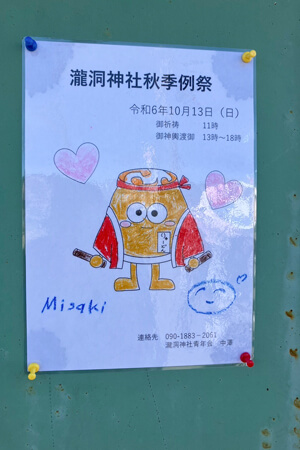 瀧洞神社秋季例祭
令和6年10月13日（日）
御祈祷　11時
御神輿渡御　13時～18時
Misaki
連絡先　090-1883-2061
瀧洞神社青年会　中澤